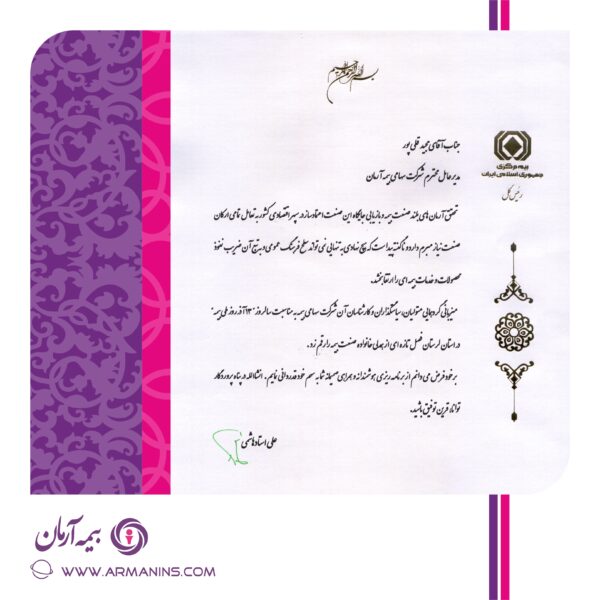 بسم الله الرحمن الرحیم
بیمه مرکزی
جمهوری اسلامی ایران
رئیس کل
جناب آقای مجید قلی پور
مدیرعامل محترم شرکت سهامی بیمه آرمان
تحقق آرمان های بلند صنعت بیمه و بازیابی جایگاه این صنعت اعتمادساز در سپهر اقتصادی کشور به تعامل تمامی ارکان
صنعت نیاز مبرم دارد و ناگفته پیداست که هیچ نهادی به تنهایی نمی تواند سطح فرهنگ عمومی و به تبع آن ضریب نفوذ
محصولات و خدمات بیمه ای را ارتقا بخشد.
میزبانی گردهمایی متولیان، سیاستگذاران و کارشناسان آن شرکت سهامی بیمه به مناسبت سالروز "۱۳ آذر روز ملی بیمه"
در استان لرستان فصل تازه ای از همدلی خانواده صنعت بیمه را رقم زد.
بر خود فرض می دانم از برنامه ریزی هوشمندانه و همراهی صمیمانه شما به سهم خود قدردانی نمایم. انشاالله در پناه پروردگار
توانا، قرین توفیق باشید.
علی استاد هاشمی
بیمه آرمان
WWW.ARMANINS.COM